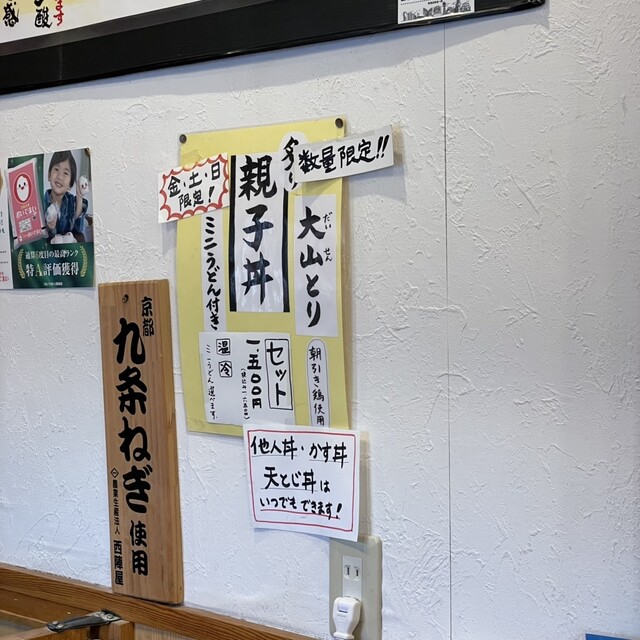 金・土・日
限定!
炙り
数量限定!!
大山とり
だい
せん
親子丼
ミニうどん付き
朝引き鶏使用
セット
一、五〇〇円
温
冷
ミニうどん選べます。
他人丼・かす丼
天とじ丼は
いつでもできます!
京都
九条ねぎ
使用
農業生産法人
西陣屋
特A評価獲得